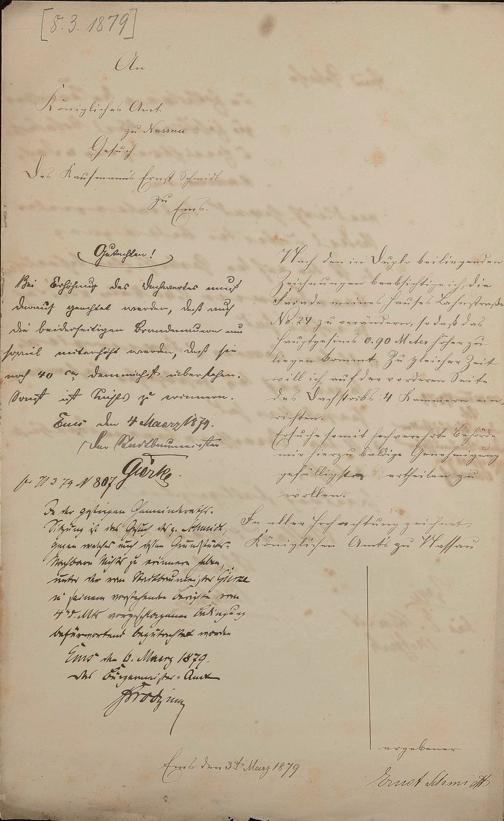 [5.3.1879]
An
Königliches Amt
zu Nassau
Gesuch
des Kaufmanns Ernst Schmidt
zu Ems.
Gutachten!
Bei Erhöhung des Dachwerkes muß
darauf geachtet werden, daß auch
die beiderseitigen Brandmauern
soviel miterhöht werden, daß sie
noch 40 cm demnächst überstehen.
Sonst ist Nichts zu erinnern.
Ems den 4 Maerz 1879.
Der Stadtbaumeister
Gierke
N 807
In der gestrigen Gemeinderaths-
Sitzung ist das Gesuch des p. Schmidt,
gegen welches auch
Nachbarn Nichts zu erinnern haben,
unter der vom Stadtbaumeister Gierke
in seinem vorstehenden Berichte vom
4t Mts vorgeschlagenen Bedingung
befürwortend begutachtet worden
Ems den 6. Maerz 1879.
Das Bürgermeister-Amt
Nach den in Duplo beiliegenden
Zeichnungen beabsichtige ich die
Facade meines Hauses Lahnstraße
No. 24 zu verändern, so daß das
Hauptgesims 0.90 Meter höher zu
liegen kommt. Zu gleicher Zeit
will ich auf der vorderen Seite
des Dachstocks 4 Kammern ein-
richten.
Ersuche somit hochverehrte Behörde
mir hierzu baldige Genehmigung
gefälligst ertheilen zu
wollen.
In aller Hochachtung zeichnet
Königlichen Amts zu Nassau
ergebener
Ernst Schmidt
Ems den 3t März 1879